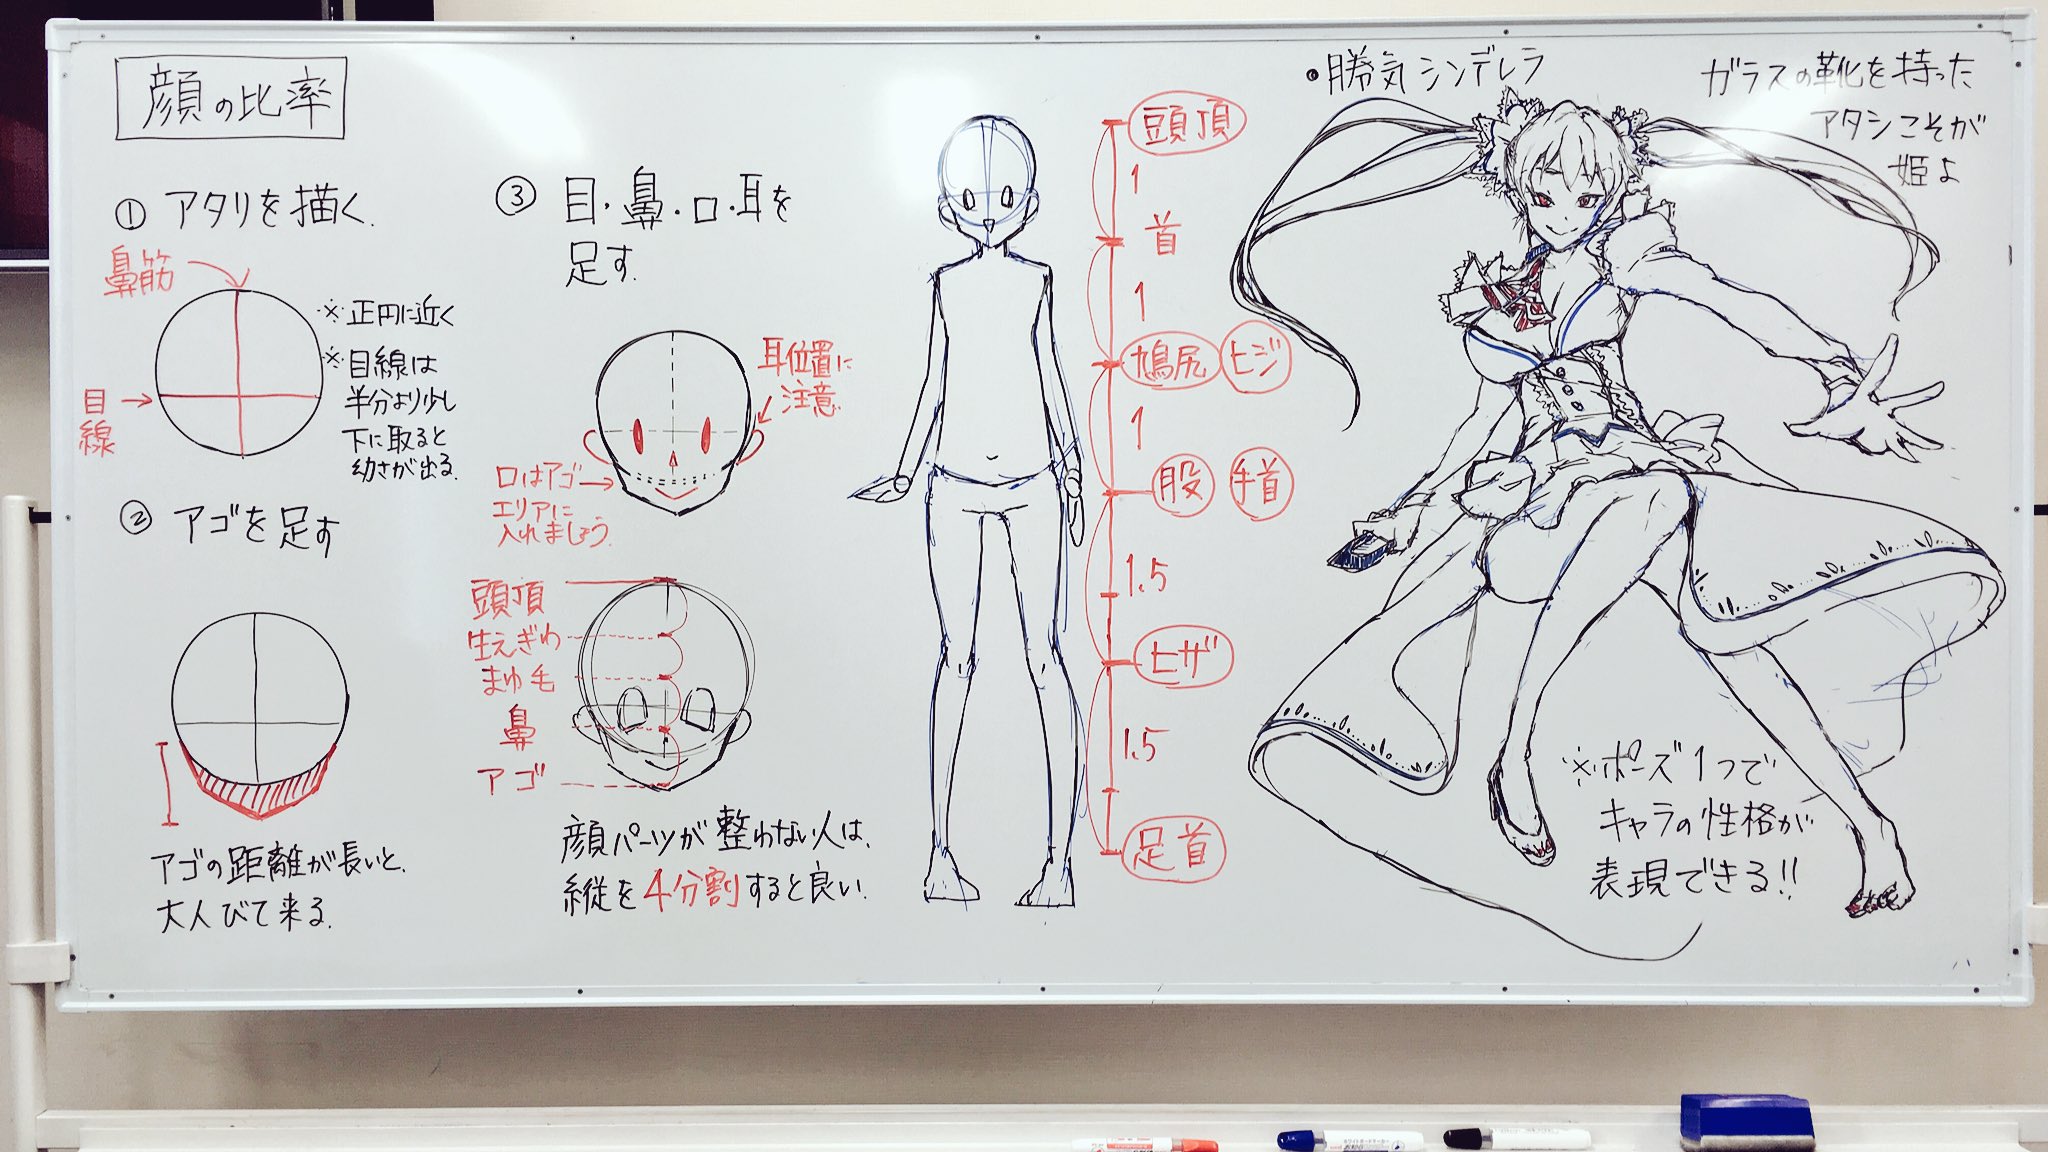 顔の比率
① アタリを描く.
鼻筋
目線
※正円に近く
※目線は
半分より少し
下に取ると
幼さが出る.
② アゴを足す
アゴの距離が長いと、
大人びて来る.
③ 目・鼻・口・耳を
足す.
耳位置に
注意
口はアゴ
エリアに
入れましょう.
頭頂
生えぎわ
まゆ毛
鼻
アゴ
顔パーツが整わない人は、
縦を4分割すると良い.
頭頂
1
首
1
鳩尻 ヒジ
1
股 手首
1.5
ヒザ
1.5
足首
・勝気シンデレラ
ガラスの靴を持った
アタシこそが
姫よ
※ポーズ1つで
キャラの性格が
表現できる!!